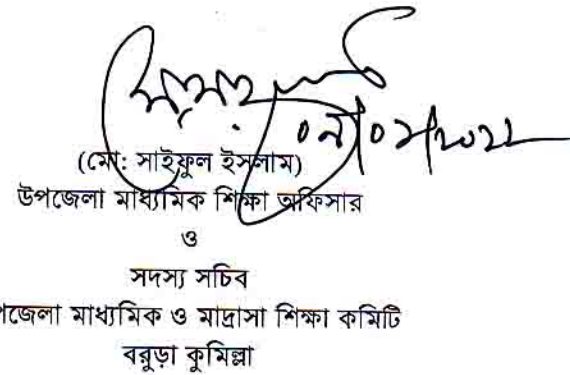 (মো: সাইফুল ইসলাম)
উপজেলা মাধ্যমিক শিক্ষা অফিসার
ও
সদস্য সচিব
পজেলা মাধ্যমিক ও মাদ্রাসা শিক্ষা কমিটি
বরুড়া কুমিল্লা